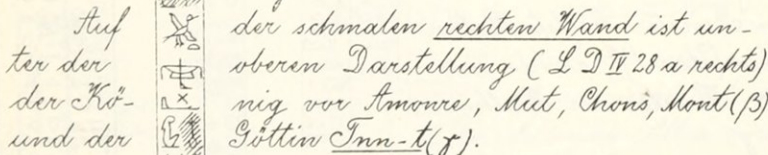 Auf der schmalen rechten Wand ist un-
ter der oberen Darstellung (L D IV 28 a rechts)
der Kö- nig vor Amonre, Mut, Chons, Mont (β)
und der Göttin Tnn-t (γ).